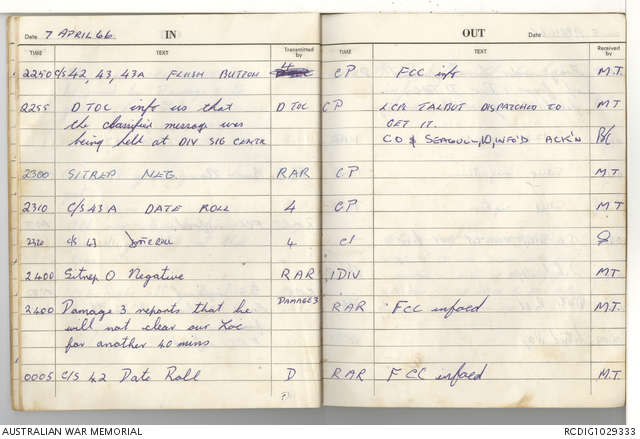 Date 7 APRIL 66 IN OUT Date
TIME TEXT Transmitted by TIME TEXT Received by
2250 C/S 42, 43, 43A FLUSH BUTTON 4 CP FCC info M.T.
2255 DTOC info us that DTOC CP LCPL TALBUT DISPATCHED TO M.T
the classified message was GET IT.
being held at DIV SIG CENTR CO & SEAGULL, IO, INFO'D ACK'N
2300 SITREP NEG. RAR CP M.T.
2310 C/S 43A DATE ROLL 4 CP M.T.
C/S 43 4
2400 Sitrep O Negative RAR 1DIV MT
2400 Damage 3 reports that he DAMAGE 3 RAR FCC infoed M.T.
will not clear our Loc
for another 40 mins
0005 C/S 42 Date Roll D RAR FCC infoed M.T.
AUSTRALIAN WAR MEMORIAL RCDIG1029333